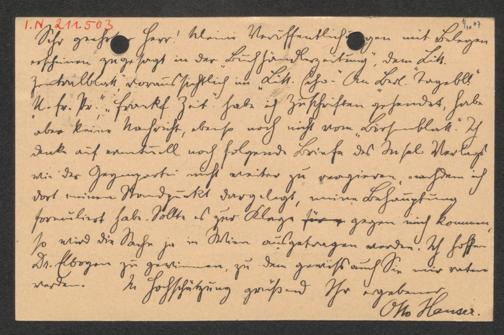 I.N. 211503
Sehr geehrter Herr! Meine Veröffentlichungen mit Belegen
erscheinen zugesagt in der Buchhändlerzeitung, dem Litt.
Zentralblatt, voraussichtlich im „Litt. Echo“. An Berl. Tagebl.
N. fr. Pr., Frankf. Zeit. habe ich Zuschriften gesendet, habe
aber keine Nachricht, ebenso noch nicht vom Börsenblatt. Ich
denke auf eventuell noch folgende Briefe des Insel Verlags
wie der Gegenpartei nicht weiter zu reagieren, nachdem ich
dort meinen Standpunkt dargelegt, meine Behauptung
formuliert habe. Sollte es zur Klage gegen mich kommen,
so wird die Sache ja in Wien ausgetragen werden. Ich hoffe
Dr. Elbogen zu gewinnen, zu dem gewiß auch Sie mir raten
werden. In Hochschätzung grüßend Ihr ergebener
Otto Hauser.